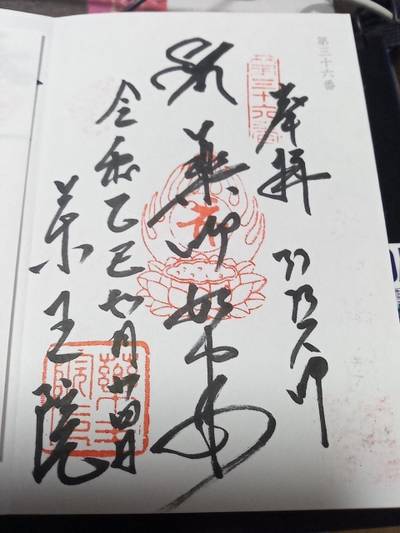 第三十六番
奉拝
弘法大師
第三十六番
薬師如来
令和乙巳七月廿四日
薬王院